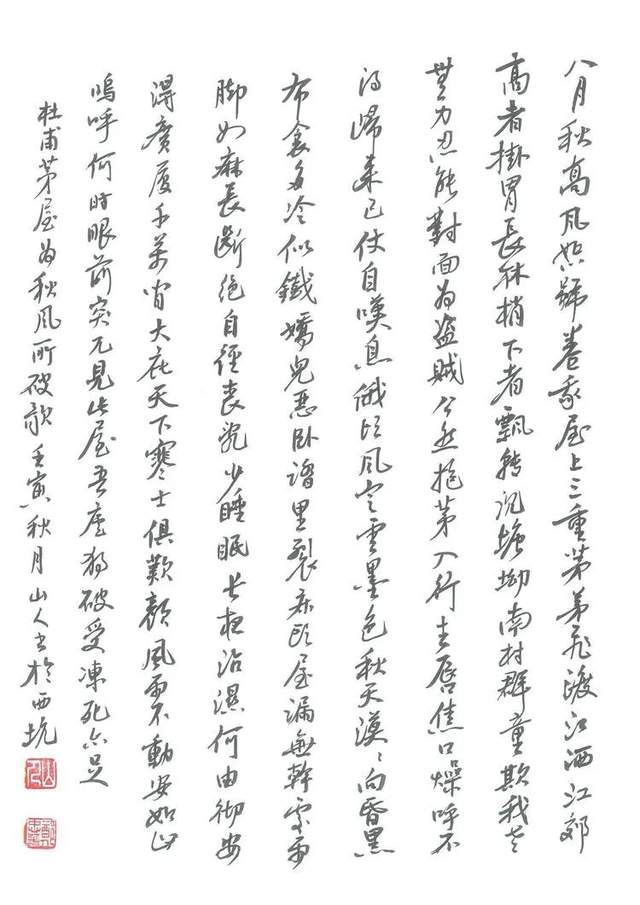 八月秋高風怒號卷我屋上三重茅茅飛渡江洒江郊
高者掛罥長林梢下者飄轉沉塘坳南村群童欺我老
無力忍能對面為盜賊公然抱茅入竹去唇焦口燥呼不
得歸來仗自嘆息俄頃風定雲墨色秋天漠〻向昏黑
布衾多冷似鐵嬌兒惡臥踏里裂床頭屋漏無幹處雨
脚如麻長斷絕自經喪亂少睡眠長夜沾濕何由徹安
得廣厦千萬間大庇天下寒士俱歡顏風雨不動安如山
嗚呼何時眼前突兀見此屋吾廬獨破受凍死亦足
杜甫茅屋為秋風所破歌壬寅秋月山人書於西坑
山人